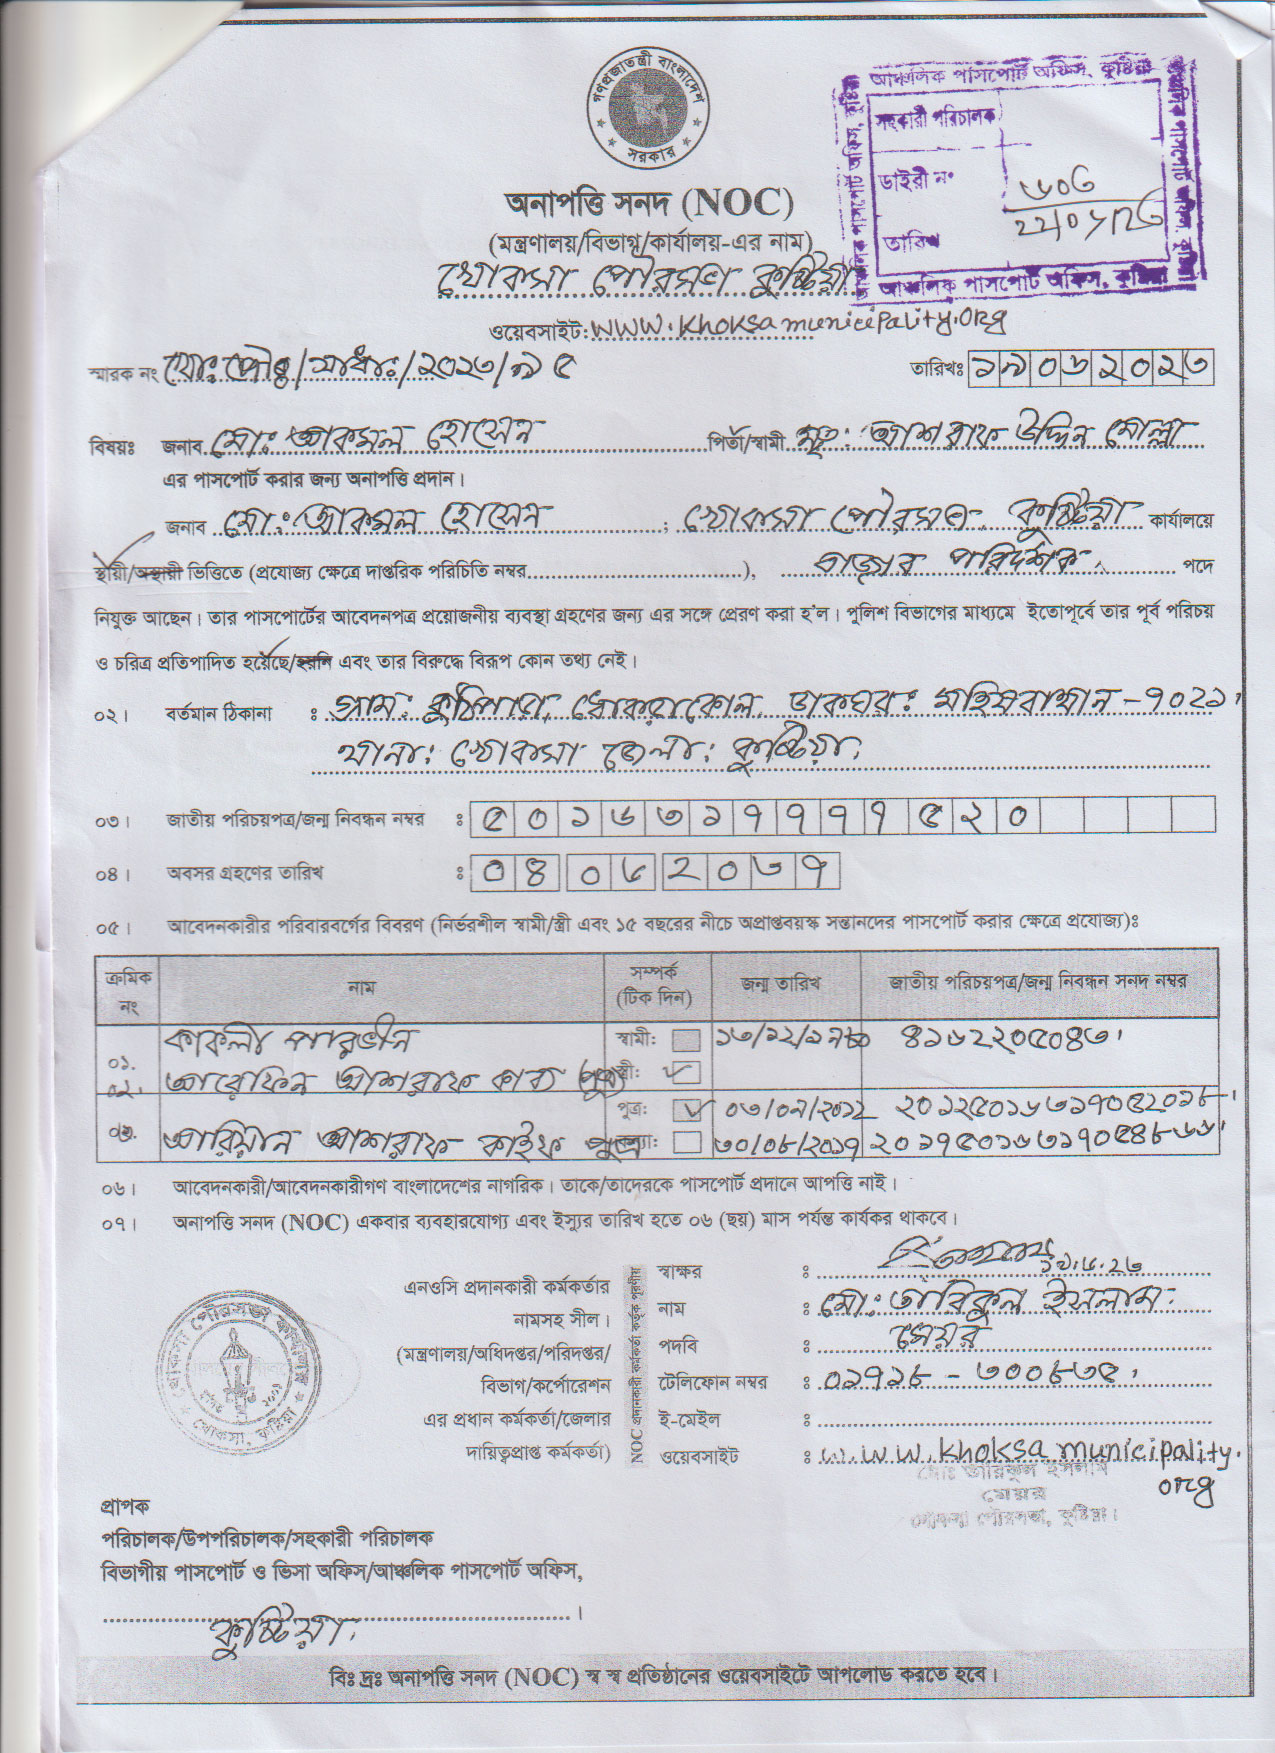 গণপ্রজাতন্ত্রী বাংলাদেশ
সরকার
আঞ্চলিক পাসপোর্ট অফিস, কুষ্টিয়া
সহকারী পরিচালক
ডাইরী নং
তারিখ
আঞ্চলিক পাসপোর্ট অফিস, কুষ্টিয়া
অনাপত্তি সনদ (NOC)
(মন্ত্রণালয়/বিভাগ/কার্যালয়-এর নাম)
খোকসা পৌরসভা কুষ্টিয়া
ওয়েবসাইট: www.khoksamunicipality.org
স্মারক নং খোঃপৌঃ/সাধাঃ/২০২৩/৯৫ তারিখঃ ১৯০৬২০২৩
বিষয়ঃ জনাব মোঃ আকমল হোসেন পিতা/স্বামী মৃত: আশরাফ উদ্দিন মোল্লা
এর পাসপোর্ট করার জন্য অনাপত্তি প্রদান।
জনাব মোঃ আকমল হোসেন ; খোকসা পৌরসভা, কুষ্টিয়া কার্যালয়ে
স্থায়ী/অস্থায়ী ভিত্তিতে (প্রযোজ্য ক্ষেত্রে দাপ্তরিক পরিচিতি নম্বর..............................), বাজার পরিদর্শক পদে
নিযুক্ত আছেন। তার পাসপোর্টের আবেদনপত্র প্রয়োজনীয় ব্যবস্থা গ্রহণের জন্য এর সঙ্গে প্রেরণ করা হ'ল। পুলিশ বিভাগের মাধ্যমে ইতোপূর্বে তার পূর্ব পরিচয়
ও চরিত্র প্রতিপাদিত হয়েছে/হয়নি এবং তার বিরুদ্ধে বিরূপ কোন তথ্য নেই।
০২। বর্তমান ঠিকানা ঃ গ্রাম: কুঠিপাড়া, ধোকরাকোল, ডাকঘর: মহিষবাথান - ৭০২১,
থানা: খোকসা জেলা: কুষ্টিয়া।
০৩। জাতীয় পরিচয়পত্র/জন্ম নিবন্ধন নম্বর ঃ ৫০১৬৩১৭৭৭৭৫২০
০৪। অবসর গ্রহণের তারিখ ঃ ০৪ ০৬ ২০৩৭
০৫। আবেদনকারীর পরিবারবর্গের বিবরণ (নির্ভরশীল স্বামী/স্ত্রী এবং ১৫ বছরের নীচে অপ্রাপ্তবয়স্ক সন্তানদের পাসপোর্ট করার ক্ষেত্রে প্রযোজ্য)ঃ
ক্রমিক নং নাম সম্পর্ক (টিক দিন) জন্ম তারিখ জাতীয় পরিচয়পত্র/জন্ম নিবন্ধন সনদ নম্বর
০১. কাকলী পারভীন স্বামী: ৪১৬২২০৫০৪৩
০২. আরেফিন আশরাফ কাব্য (পুত্র) স্ত্রী: ✓
পুত্র: ✓ ০৩/০৯/২০১২ ২০১২৫০১৬৩১৭০৫২০১৮
০৩. আরিয়ান আশরাফ কাইফ পুত্র কন্যা: ৩০/০৮/২০১৭ ২০১৭৫০১৬৩১৭০৫৪৮৬৬
০৬। আবেদনকারী/আবেদনকারীগণ বাংলাদেশের নাগরিক। তাকে/তাদেরকে পাসপোর্ট প্রদানে আপত্তি নাই।
০৭। অনাপত্তি সনদ (NOC) একবার ব্যবহারযোগ্য এবং ইস্যুর তারিখ হতে ০৬ (ছয়) মাস পর্যন্ত কার্যকর থাকবে।
এনওসি প্রদানকারী কর্মকর্তার
নামসহ সীল।
(মন্ত্রণালয়/অধিদপ্তর/পরিদপ্তর/
বিভাগ/কর্পোরেশন
এর প্রধান কর্মকর্তা/জেলার
দায়িত্বপ্রাপ্ত কর্মকর্তা)
NOC প্রদানকারী কর্মকর্তা কর্তৃক পূরণীয়
স্বাক্ষর ঃ ১৯.৬.২৩
নাম ঃ মোঃ তারিকুল ইসলাম
পদবি ঃ মেয়র
টেলিফোন নম্বর ঃ ০১৭১৮ - ৩০০৮৩৫
ই-মেইল ঃ
ওয়েবসাইট ঃ w.w.w.khoksamunicipality.
org
মোঃ তারিকুল ইসলাম
মেয়র
খোকসা পৌরসভা, কুষ্টিয়া।
খোকসা পৌরসভা কার্যালয়
খোকসা, কুষ্টিয়া
প্রাপক
পরিচালক/উপপরিচালক/সহকারী পরিচালক
বিভাগীয় পাসপোর্ট ও ভিসা অফিস/আঞ্চলিক পাসপোর্ট অফিস,
কুষ্টিয়া।
বিঃ দ্রঃ অনাপত্তি সনদ (NOC) স্ব স্ব প্রতিষ্ঠানের ওয়েবসাইটে আপলোড করতে হবে।